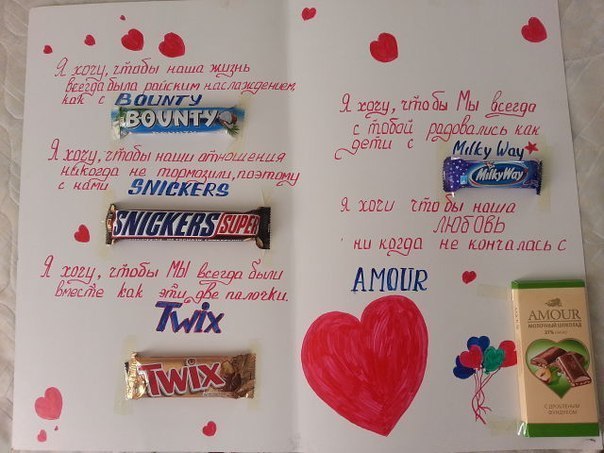 Я хочу, чтобы наша жизнь
всегда была райским наслаждением
как с BOUNTY
BOUNTY
Я хочу, чтобы наши отношения
никогда не тормозили, поэтому
с нами SNICKERS
SNICKERS SUPER
Я хочу, чтобы МЫ всегда были
вместе как эти две палочки.
TWIX
TWIX
Я хочу, чтобы Мы всегда
с тобой радовались как
дети с Milky Way
MilkyWay
Я хочи что бы наша
ЛЮБОВЬ
ни когда не кончалась с
AMOUR
AMOUR
МОЛОЧНЫЙ ШОКОЛАД
С ДРОБЛЕНЫМ
ФУНДУКОМ